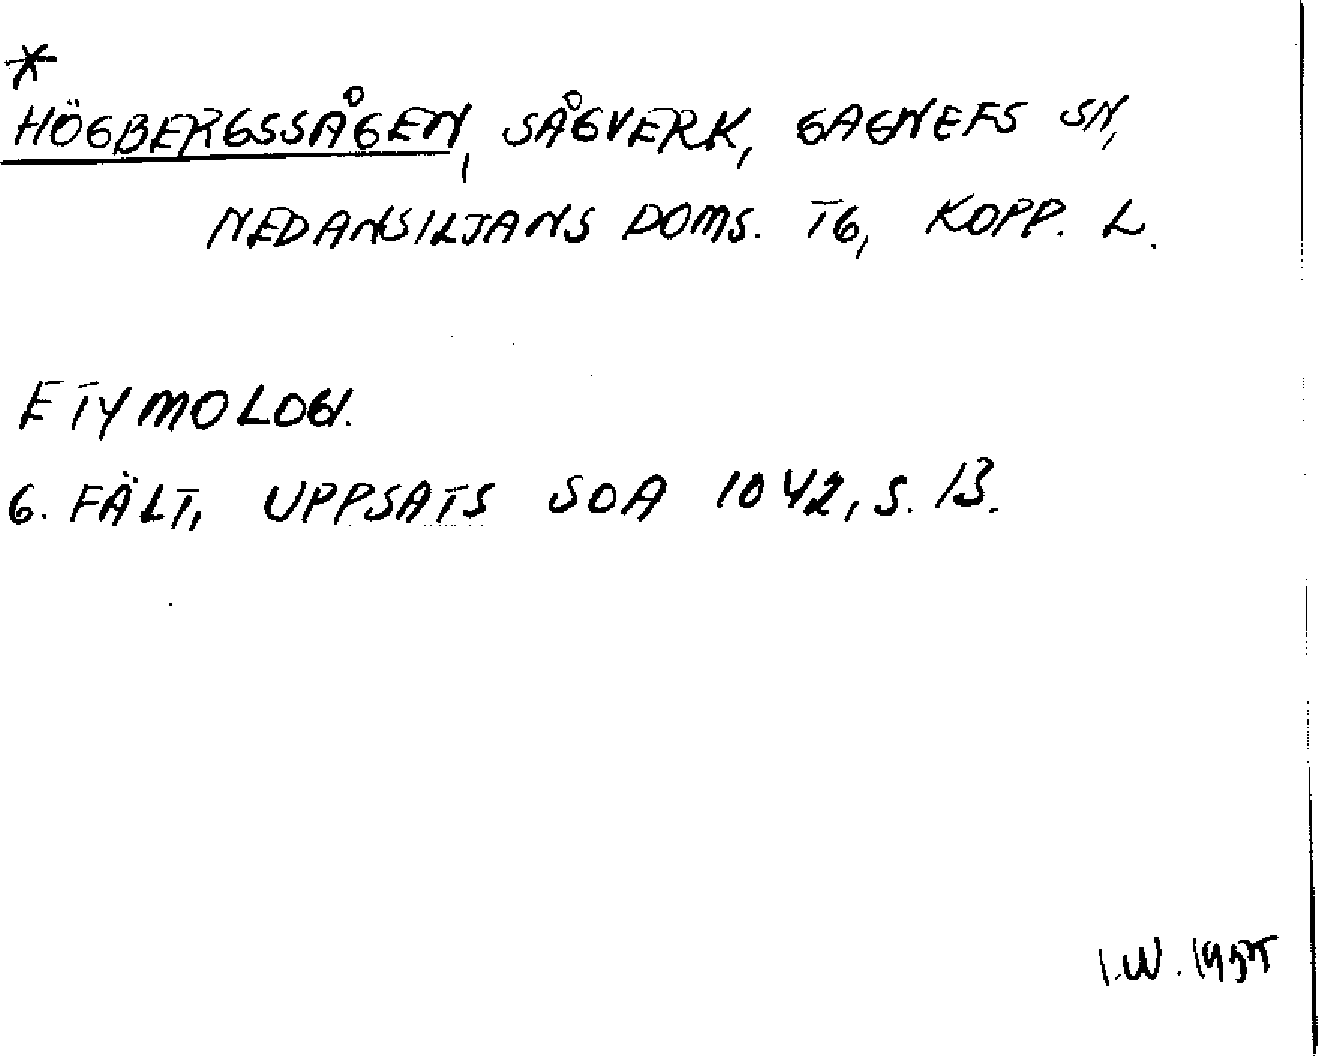 *
HÖGBERGSSÅGEN, SÅGVERK, GAGNEFS SN,
NEDANSILJANS DOMS. TG, KOPP. L.
ETYMOLOGI.
G. FÄLT, UPPSATS SOA 1042, S. 13.
I.W.